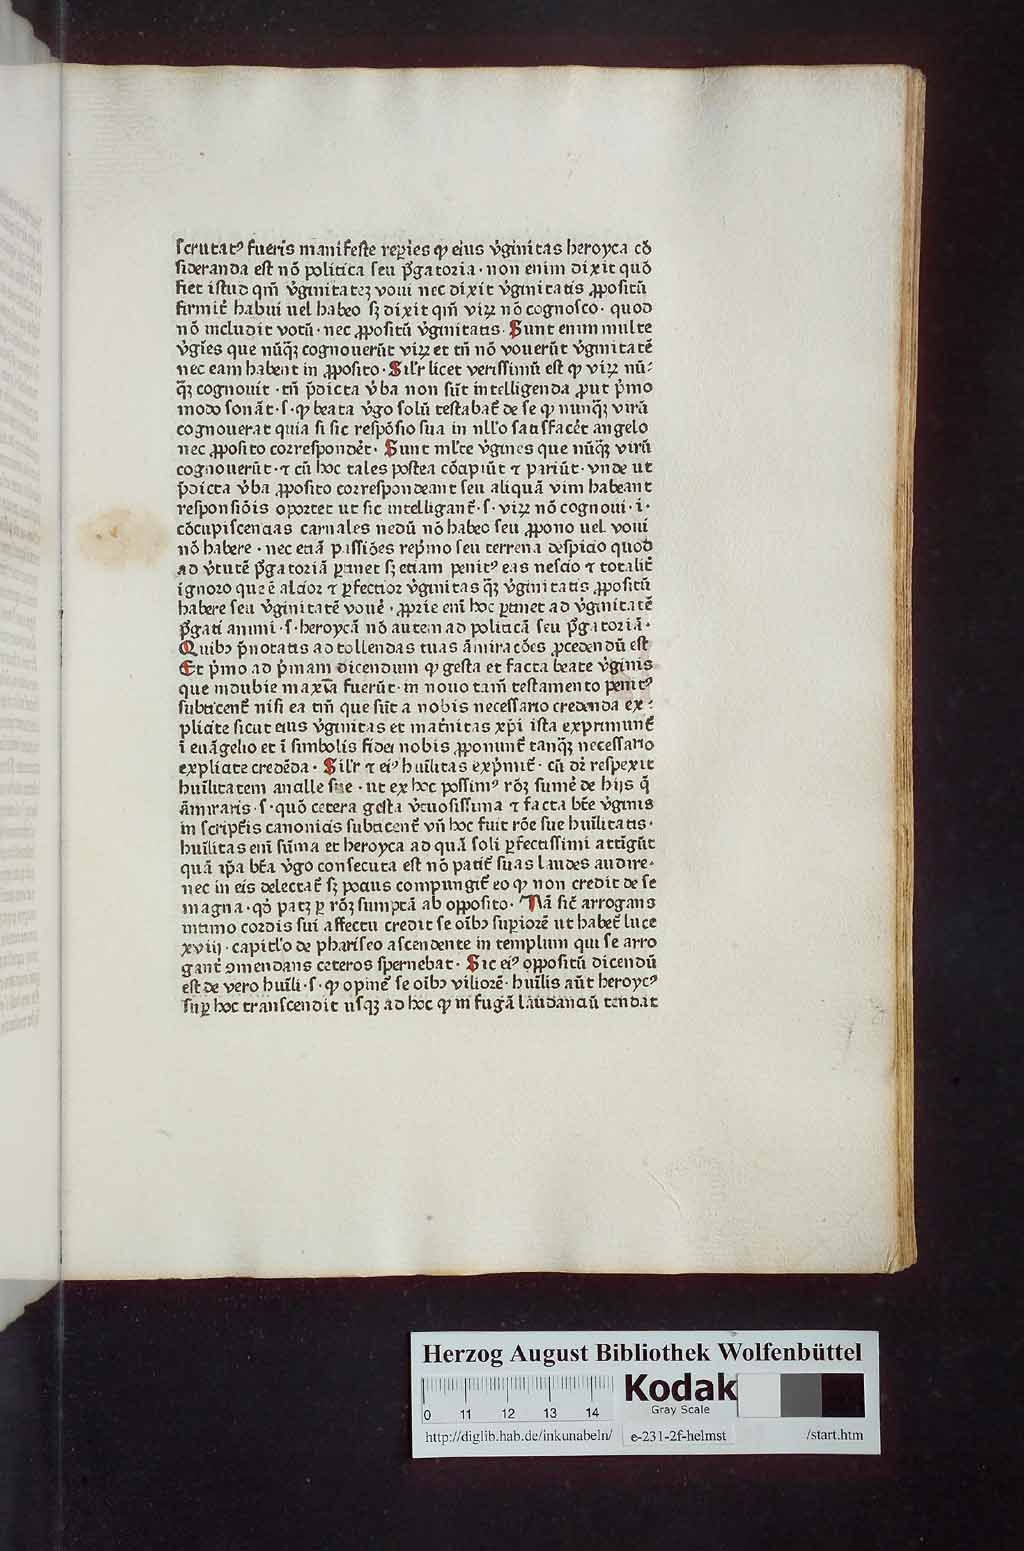 scrutatꝰ fueris manifeste reperies ꝙ eius v̓ginitas heroyca cō
sideranda est nō politica seu p̄gatoria · non enim dixit quō
fiet istud qm̄ v̓ginitateꝫ voui nec dixit v̓ginitatis ꝓpositū
firmit̓ habui uel habeo sꝫ dixit qm̄ viꝝ nō cognosco · quod
nō includit votū · nec ꝓpositū v̓ginitatis · Sunt enim multe
v̓gīes que nūq̄ꝫ cognouerūt viꝝ et tn̄ nō vouerūt v̓ginitatē
nec eam habent in ꝓposito · Sil̓r licet verissimū est ꝙ viꝝ nū⸗
q̄ꝫ cognouit · tn̄ p̄dicta v̓ba non sūt intelligenda ꝓut p̓mo
modo sonāt · s · ꝙ beata v̓go solū testabat̓ de se ꝙ nunq̄ꝫ virū
cognouerat quia si sic respōsio sua in nll̓o satisfac̓et angelo
nec ꝓposito correspond̓et · Sunt ml̓te v̓gines que nūq̄ꝫ virū
cognouerūt · ⁊ cū hoc tales postea cōcipiūt ⁊ pariūt · vnde ut
p̄dicta v̓ba ꝓposito correspondeant seu aliquā vim habeant
responsiōis oportet ut sic intelligant̓ · s · viꝝ nō cognoui · i ·
cōcupiscencias carnales nedū nō habeo seu ꝓpono uel voui
nō habere · nec etiā passiōes rep̓mo seu terrena despicio quod
ad v̓tutē p̄gatoriā ꝑtinet sꝫ etiam penitꝰ eas nescio ⁊ totalit̓
ignoro que ē alcior ⁊ ꝑfectior v̓ginitas q̄ꝫ v̓ginitatis ꝓpositū
habere seu v̓ginitatē vou̓e · ꝓprie eni̅ hoc ꝑtinet ad v̓ginitatē
p̄gati animi · s · heroycā nō autem ad politicā seu p̄gatoriā ·
Quibꝫ p̄notatis ad tollendas tuas āmiracōes ꝓcedendū est
Et p̓mo ad p̓mam dicendum ꝙ gesta et facta beate v̓ginis
que indubie maxīa fuerūt · in nouo tam̄ testamento penitꝰ
subticent̓ nisi ea tm̄ que sūt a nobis necessario credenda ex⸗
plicite sicut eius v̓ginitas et mat̓nitas xp̄i ista exprimunt̓
ī euāgelio et ī simbolis fidei nobis ꝓponunt̓ tanq̄ꝫ necessario
explicite credēda · Sil̓r ⁊ eiꝰ huīlitas exp̓mit̓ · cū dr̄ respexit
huīlitatem ancille sue · ut ex hoc possimꝰ rōꝫ sum̓e de hijs q̄
āmiraris · s · quō cetera gesta v̓tuosissima ⁊ facta bt̄e v̓ginis
in script̓is canonicis subticent̓ vn̄ hoc fuit rōe sue huīlitatis ·
huīlitas eni̅ sūma et heroyca ad quā soli ꝑfectissimi attīgūt
quā ip̄a bt̄a v̓go consecuta est nō patit̓ suas laudes audire ·
nec in eis delectat̓ sꝫ pocius compungit̓ eo ꝙ non credit de se
magna · qd̓ patꝫ ꝑ rōꝫ sumptā ab opposito · Nā sic̓ arrogans
intimo cordis sui affectu credit se oībꝫ suꝑiorē ut habet̓ luce
xviij · capitl̓o de phariseo ascendente in templum qui se arro
gant̓ ꝯmendans ceteros spernebat · Sic eiꝰ oppositū dicendū
est de vero huīli · s · ꝙ opinet̓ se oībꝫ viliorē · huīlis aūt heroycꝰ
suꝑ hoc transcendit usqꝫ ad hoc ꝙ in fugā laudanciū tendat
Herzog August Bibliothek Wolfenbüttel
0 11 12 13 14
Kodak
Gray Scale
http://diglib.hab.de/inkunabeln/ e-231-2f-helmst /start.htm